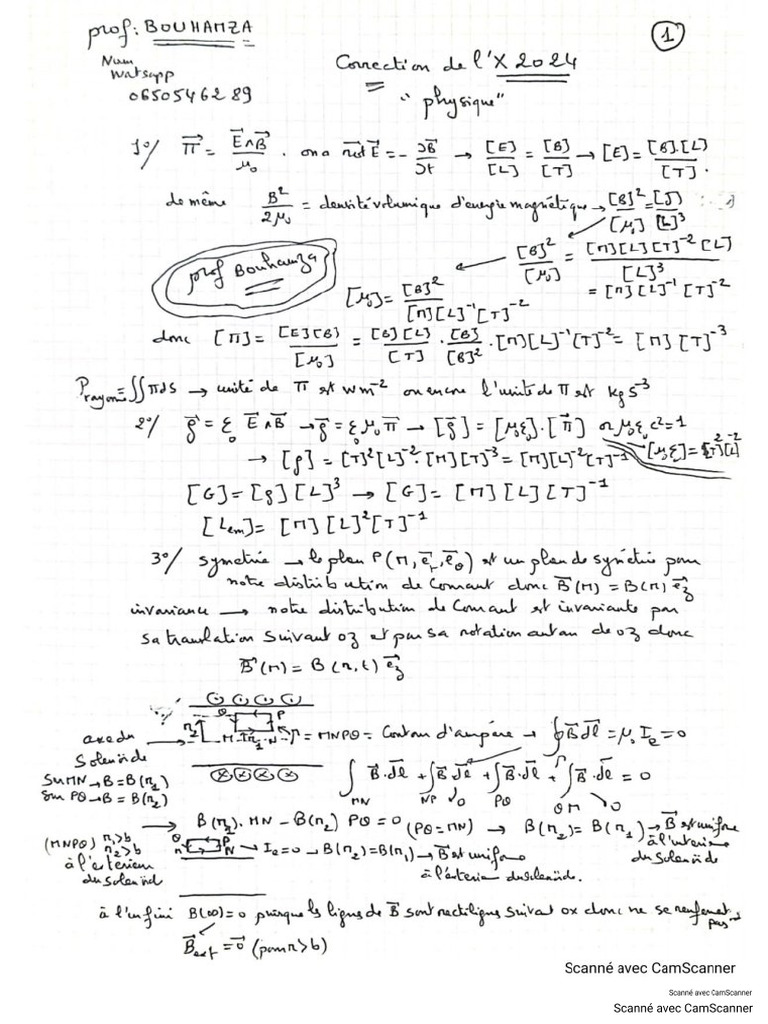 prof: BOUHAMZA
1
Num
Watsapp
0650546289
Correction de l'X 2024
"physique"
1°/ \vec{Π} = \frac{\vec{E} ∧ \vec{B}}{μ₀} . on a \vec{rot} \vec{E} = - \frac{∂\vec{B}}{∂t} → \frac{[E]}{[L]} = \frac{[B]}{[T]} → [E] = \frac{[B].[L]}{[T]} .
de même \frac{B²}{2μ₀} = densité volumique d'énergie magnétique → \frac{[B]²}{[μ₀]} = \frac{[J]}{[L]³}
\frac{[B]²}{[μ₀]} = \frac{[M][L][T]⁻²[L]}{[L]³}
= [M][L]⁻¹[T]⁻²
prof Bouhamza
[μ₀] = \frac{[B]²}{[M][L]⁻¹[T]⁻²}
donc [Π] = \frac{[E][B]}{[μ₀]} = \frac{[B][L]}{[T]} . \frac{[B]}{[B]²} . [M][L]⁻¹[T]⁻² = [M][T]⁻³
P_{rayon} = ∬ΠdS → unité de Π est Wm⁻² ou encore l'unité de Π est kg s⁻³
2°/ \vec{g} = ε₀ \vec{E} ∧ \vec{B} → \vec{g} = ε₀ μ₀ \vec{Π} → [\vec{g}] = [μ₀ε₀].[\vec{Π}] or μ₀ε₀c² = 1
→ [μ₀ε₀] = [T]²[L]⁻²
→ [g] = [T]²[L]⁻².[M][T]⁻³ = [M][L]⁻²[T]⁻¹
[G] = [g][L]³ → [G] = [M][L][T]⁻¹
[L_{em}] = [M][L]²[T]⁻¹
3°/ symétrie → le plan P(M, \vec{e_r}, \vec{e_θ}) est un plan de symétrie pour
notre distribution de courant donc \vec{B}(M) = B(M) \vec{e_z}
invariance → notre distribution de courant est invariante par
sa translation suivant oz et par sa rotation autour de oz donc
\vec{B}(M) = B(r,t) \vec{e_z}
axe du
Solénoïde
r₂ Q P
M r₁ N
Γ = MNPQ = Contour d'ampère → ∮_Γ \vec{B}.\vec{dl} = μ₀ I_e = 0
Sur MN → B = B(r₁)
Sur PQ → B = B(r₂)
∫_{MN} \vec{B}.\vec{dl} + ∫_{NP} \vec{B}.\vec{dl} + ∫_{PQ} \vec{B}.\vec{dl} + ∫_{QM} \vec{B}.\vec{dl} = 0
0 0
→ B(r₁).MN - B(r₂) PQ = 0 (PQ = MN) → B(r₂) = B(r₁) → \vec{B} est uniforme
à l'intérieur
du Solénoïde
(MNPQ) r₁ > b
r₂ > b
à l'extérieur
du solénoïde
Q P
M N
→ I_e = 0 → B(r₂) = B(r₁) → \vec{B} est uniforme
à l'extérieur du solénoïde.
à l'infini B(∞) = 0 puisque les lignes de \vec{B} sont rectilignes suivant ox donc ne se renferment
pas
\vec{B}_{ext} = \vec{0} (pour r > b)
Scanné avec CamScanner
Scanné avec CamScanner
Scanné avec CamScanner